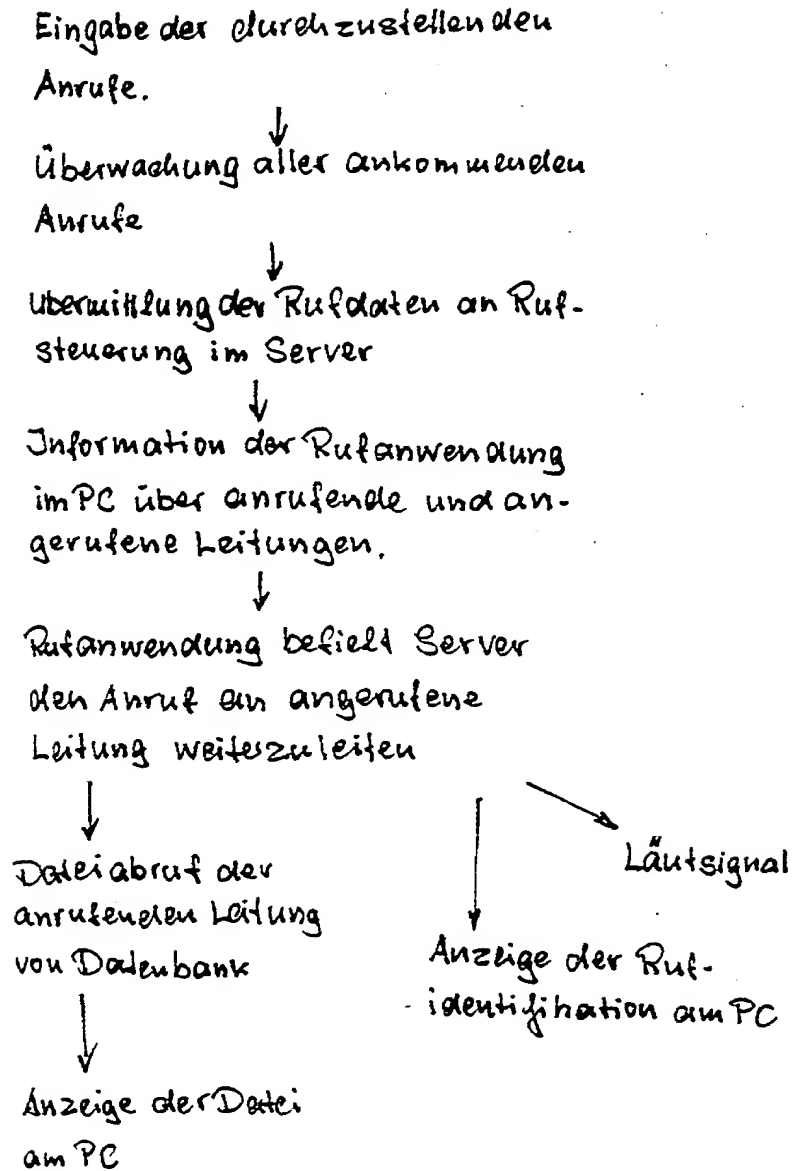 Eingabe der durchzustellenden
Anrufe.
Überwachung aller ankommenden
Anrufe
Übermittlung der Rufdaten an Ruf-
steuerung im Server
Information der Rufanwendung
im PC über anrufende und an-
gerufene Leitungen.
Rufanwendung befielt Server
den Anruf an angerufene
Leitung weiterzuleiten
Läutsignal
Dateiabruf der
anrufenden Leitung
von Datenbank
Anzeige der Ruf-
identifikation am PC
Anzeige der Datei
am PC